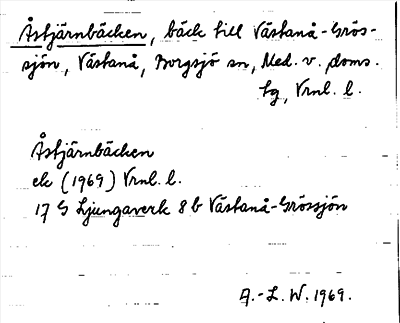 Åstjärnbäcken, bäck till Västanå-Grös-
sjön, Västanå, Borgsjö sn, Med. v. doms.
tg, Vrnl. l.
Åstjärnbäcken
ek (1969) Vrnl. l.
17 G Ljungaverk 8 b Västanå-Grössjön
A.-L. W. 1969.